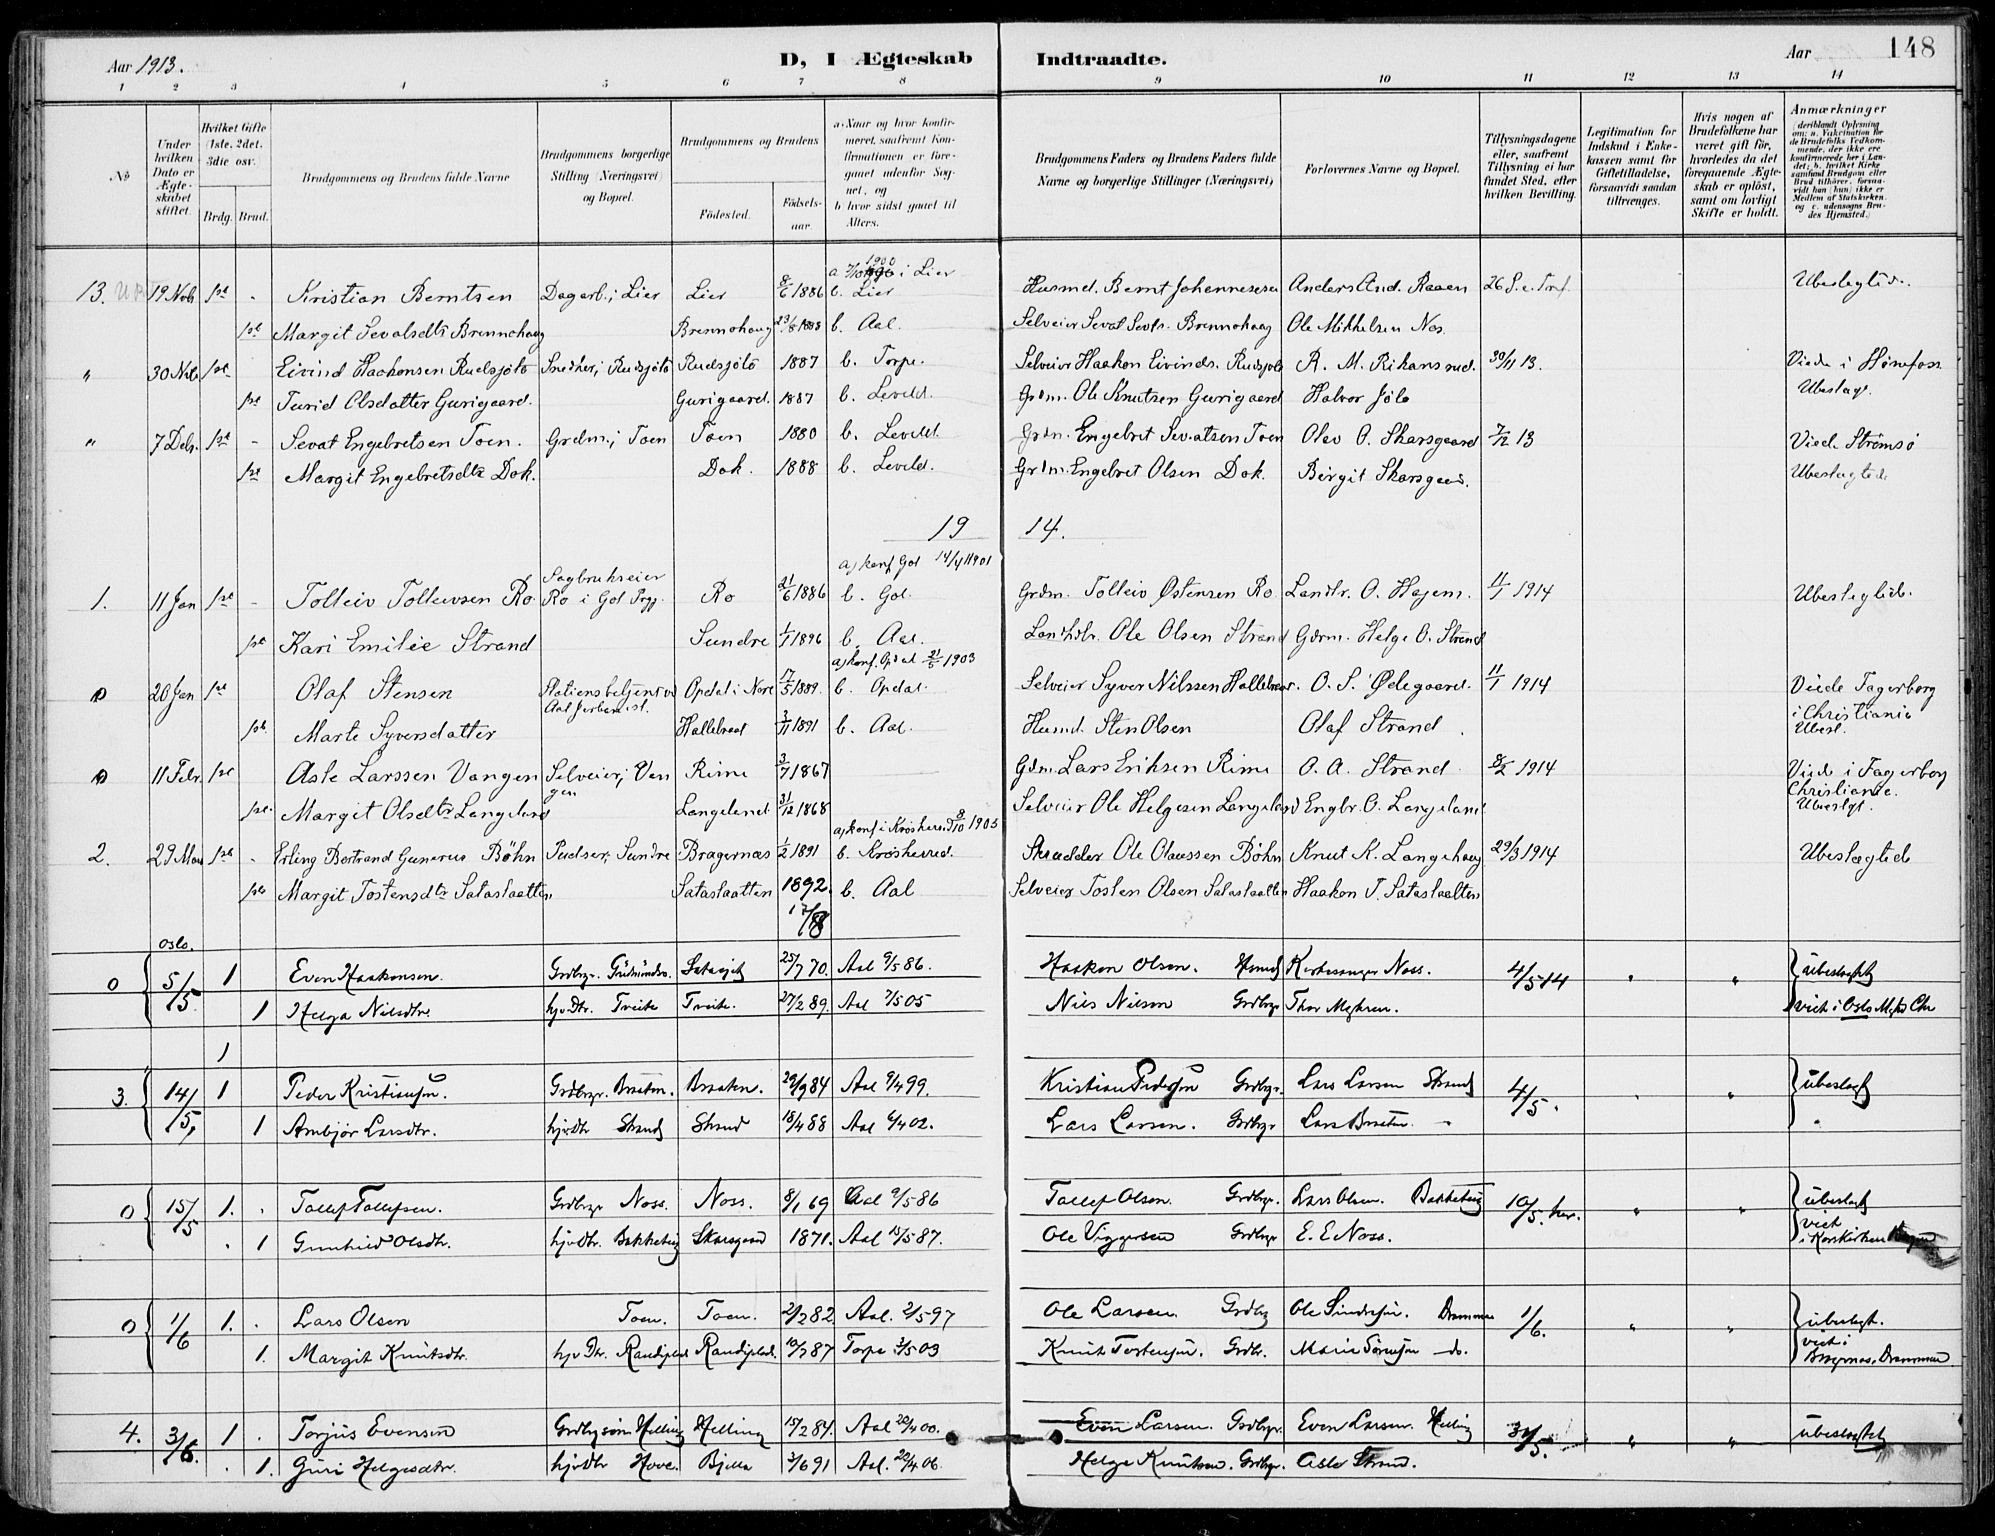 Aar 1913. D, I Ægteskab Indtraadte. Aar 148
1 2 3 4 5 6 7 8 9 10 11 12 13 14
No
Under hvilken Dato er Ægteskabet stiftet.
Hvilket Gifte (1ste. 2det. 3die osv.
Brdg. Brud.
Brudgommens og Brudens fulde Navne
Brudgommens borgerlige Stilling (Næringsvei) og Bopæl.
Brudgommens og Brudens
Fødested. Fødsels-aar.
a. Naar og hvor konfirmeret, saafremt Konfirmationen er foregaaet udenfor Sognet, og
b. hvor sidst gaaet til Alters.
Brudgommens Faders og Brudens Faders fulde Navne og borgerlige Stillinger (Næringsvei)
Forlovernes Navne og Bopæl.
Tillysningsdagene eller, saafremt Tillysning ei har fundet Sted, efter hvilken Bevilling.
Legitimation for Indskud i Enkekassen samt for Giftetilladelse, forsaavidt saadan tiltrænges.
Hvis nogen af Brudefolkene har været gift før, hvorledes da det foregaaende Ægteskab er opløst, samt om lovligt Skifte er holdt.
Anmærkninger (deriblandt Oplysning om: a. Vakcination for de Brudefolks Vedkommende, der ikke ere konfirmerede her i Landet; b. hvilket Kirkesamfund Brudgom eller Brud tilhører, forsaavidt han (hun) ikke er Medlem af Statskirken, og c. udensogns Brudes Hjemsted.)
13. 19 Nob 1ste - Kristian Berntsen Dagarb.; Lier Lier 8/6 1886 b. Lier Husmd. Bernt Johannessen Anders And. Raaen Ubeslegtede.
1ste Margit Sevatsdtr Brennohaug Brennohaug 23/8 1888 b. Aal. Selveier Sevat Sevts. Brennohaug Ole Mikkelsen Nos.
" 30 Nob 1ste Eivind Haakonsen Rudsjøto Snedker; Rudsjøto Rudsjøto 1887 b. Torpe. Selveier Haakon Eivinds. Rudsjoto R. M. Rikansrud. 30/11 13. Viede i Hønefoss
1ste Turid Olsdatter Gurigaard. Gurigaard. 1887 b. Leveld. Grdm. Ole Knutsen Gurigaard Halvor Jølo Ubeslag.
" 7 Deb. 1ste - Sevat Engebretsen Toen. Grdm.; Toen Toen 1880 b. Leveld. Grdm. Engebret Sevatsen Toen Olav O. Skarsgaard 7/12 13 Vied. Strømsø
1ste Margit Engebretsdtr Dok. Dok. 1888 b. Leveld. Grdm. Engebret Olsen Dok. Birgit Skarsgaard. Ubeslegtede
19 14.
a) konf Gol 14/4 1901
1. 11 Jan 1ste - Tolleiv Tolleivsen Ro Sagbrukseier Ro i Gol Pregj. Ro 21/6 1886 b. Gol. Grdm. Tolleiv Østensen Ro. Landhr. O. Hagem. 11/1 1914 Ubeslegtede.
1ste Kari Emilie Strand Sundre 1/1 1896 b. Aal. Landhdlr. Ole Olsen Strand Gdrm. Helge O. Strand
a) konf. Opdal 21/5 1903
0 20 Jan 1ste Olaf Stensen Stationsbetjent ved Aal Jerbanest. Opdal i Nore 17/5 1889. b. Opdal. Selveier Syver Nilssen Hallebraat. O. S. Ødegaard. 11/1 1914 Viede Fagerborg i Christiania Ubesl.
1ste. Marte Syversdatter Hallebraat 3/11 1891 b. Aal. Husmd. Sten Olsen Olaf Strand
0 11 Febr. 1ste Asle Larssen Vangen Selveier; Vangen Rime 3/7 1867 Gdm. Lars Eriksen Rime O. A. Strand 8/2 1914 Viede i Fagerborg Christiania. Ubeslgt.
1ste. Margit Olsdtr Langeland Langeland 31/12 1868 Selveier Ole Helgesen Langeland Engbr. O. Langeland
a) konf i Krøsherred 8/10 1905
2. 29 Mars 1ste - Erling Bertrand Gunerus Bøhn Pudser, Sundre Bragernæs 1/2 1891 b. Krøsherred. Skrædder Ole Olaussen Bøhn Knut K. Langehaug 29/3 1914 Ubeslægtede
1ste Margit Tostensdtr Sataslaatten Sataslaatten 1892. 17/8 b. Aal Selveier Tosten Olsen Sataslaatten Haakon T. Sataslaatten
Oslo.
0 5/5 1 Even Haakonsen. Grdbrgr. 25/7 70. Aal 9/5 86. Haakon Olsen. Kirkesanger Noss. 4/5 14 " " ubeslagtet
1 Helga Nilsdtr. hjv. Dtr. Tveite Tveite. 27/2 89. Aal 7/5 05 Nils Nilson Grdbrgr Thor Myhren. viet i Oslo
3. 14/5. 1 Peder Kristiansen. Grdbrgr. Braaten. Braaten. 29/9 84 Aal 9/4 99. Kristian Pedersen Grdbrgr. Lars Larsen Strand 4/5. " " ubeslagt
1 Ambjør Larsdtr. hjv. Dtr Strand Strand 18/4 88 Aal 6/4 02. Lars Larsen. Grdbrgr Lars Braaten. "
0 15/5 1. Tollef Tollefsen. Grdbrgr Noss. Noss. 8/1 69 Aal 9/5 86 Tollef Olsen. Grdbrgr. Lars Olsen. Bakkehaug 10/5. " " ubeslagt viet i Korskirken
1 Gunhild Olsdtr. hjv. Dtr. Bakkehaug Skarsgaard 1871. Aal 15/5 87. Ole Viggersen Grdbrgr E. E. Noss.
0 1/6 1. Lars Olsen Toen. Toen. 2/2 82 Aal. 2/5 97 Ole Larsen. Grdbrg Ole Drammen 1/6. " " ubeslagt. viet i Bragernæs, Drammen
1. Margit Knutsdtr. hjv Dtr. 10/7 87 Torpe 3/5 03 Knut Torstensen. Grdbr. Marie Sørensen do.
4. 3/6. 1 Torjus Evenson Grdbrgsøn Helling Helling 15/2 84. Aal 20/4 00. Even Larsen. Grdbrgr. Even Larsen. Helling 31/5. " " ubeslagtet
1. Guri Helgesdtr. hjv Dtr Hove. Bjella 3/6 91 Aal. 20/4 06. Helge Knutsen. Grdbrgr. Asle Strand.